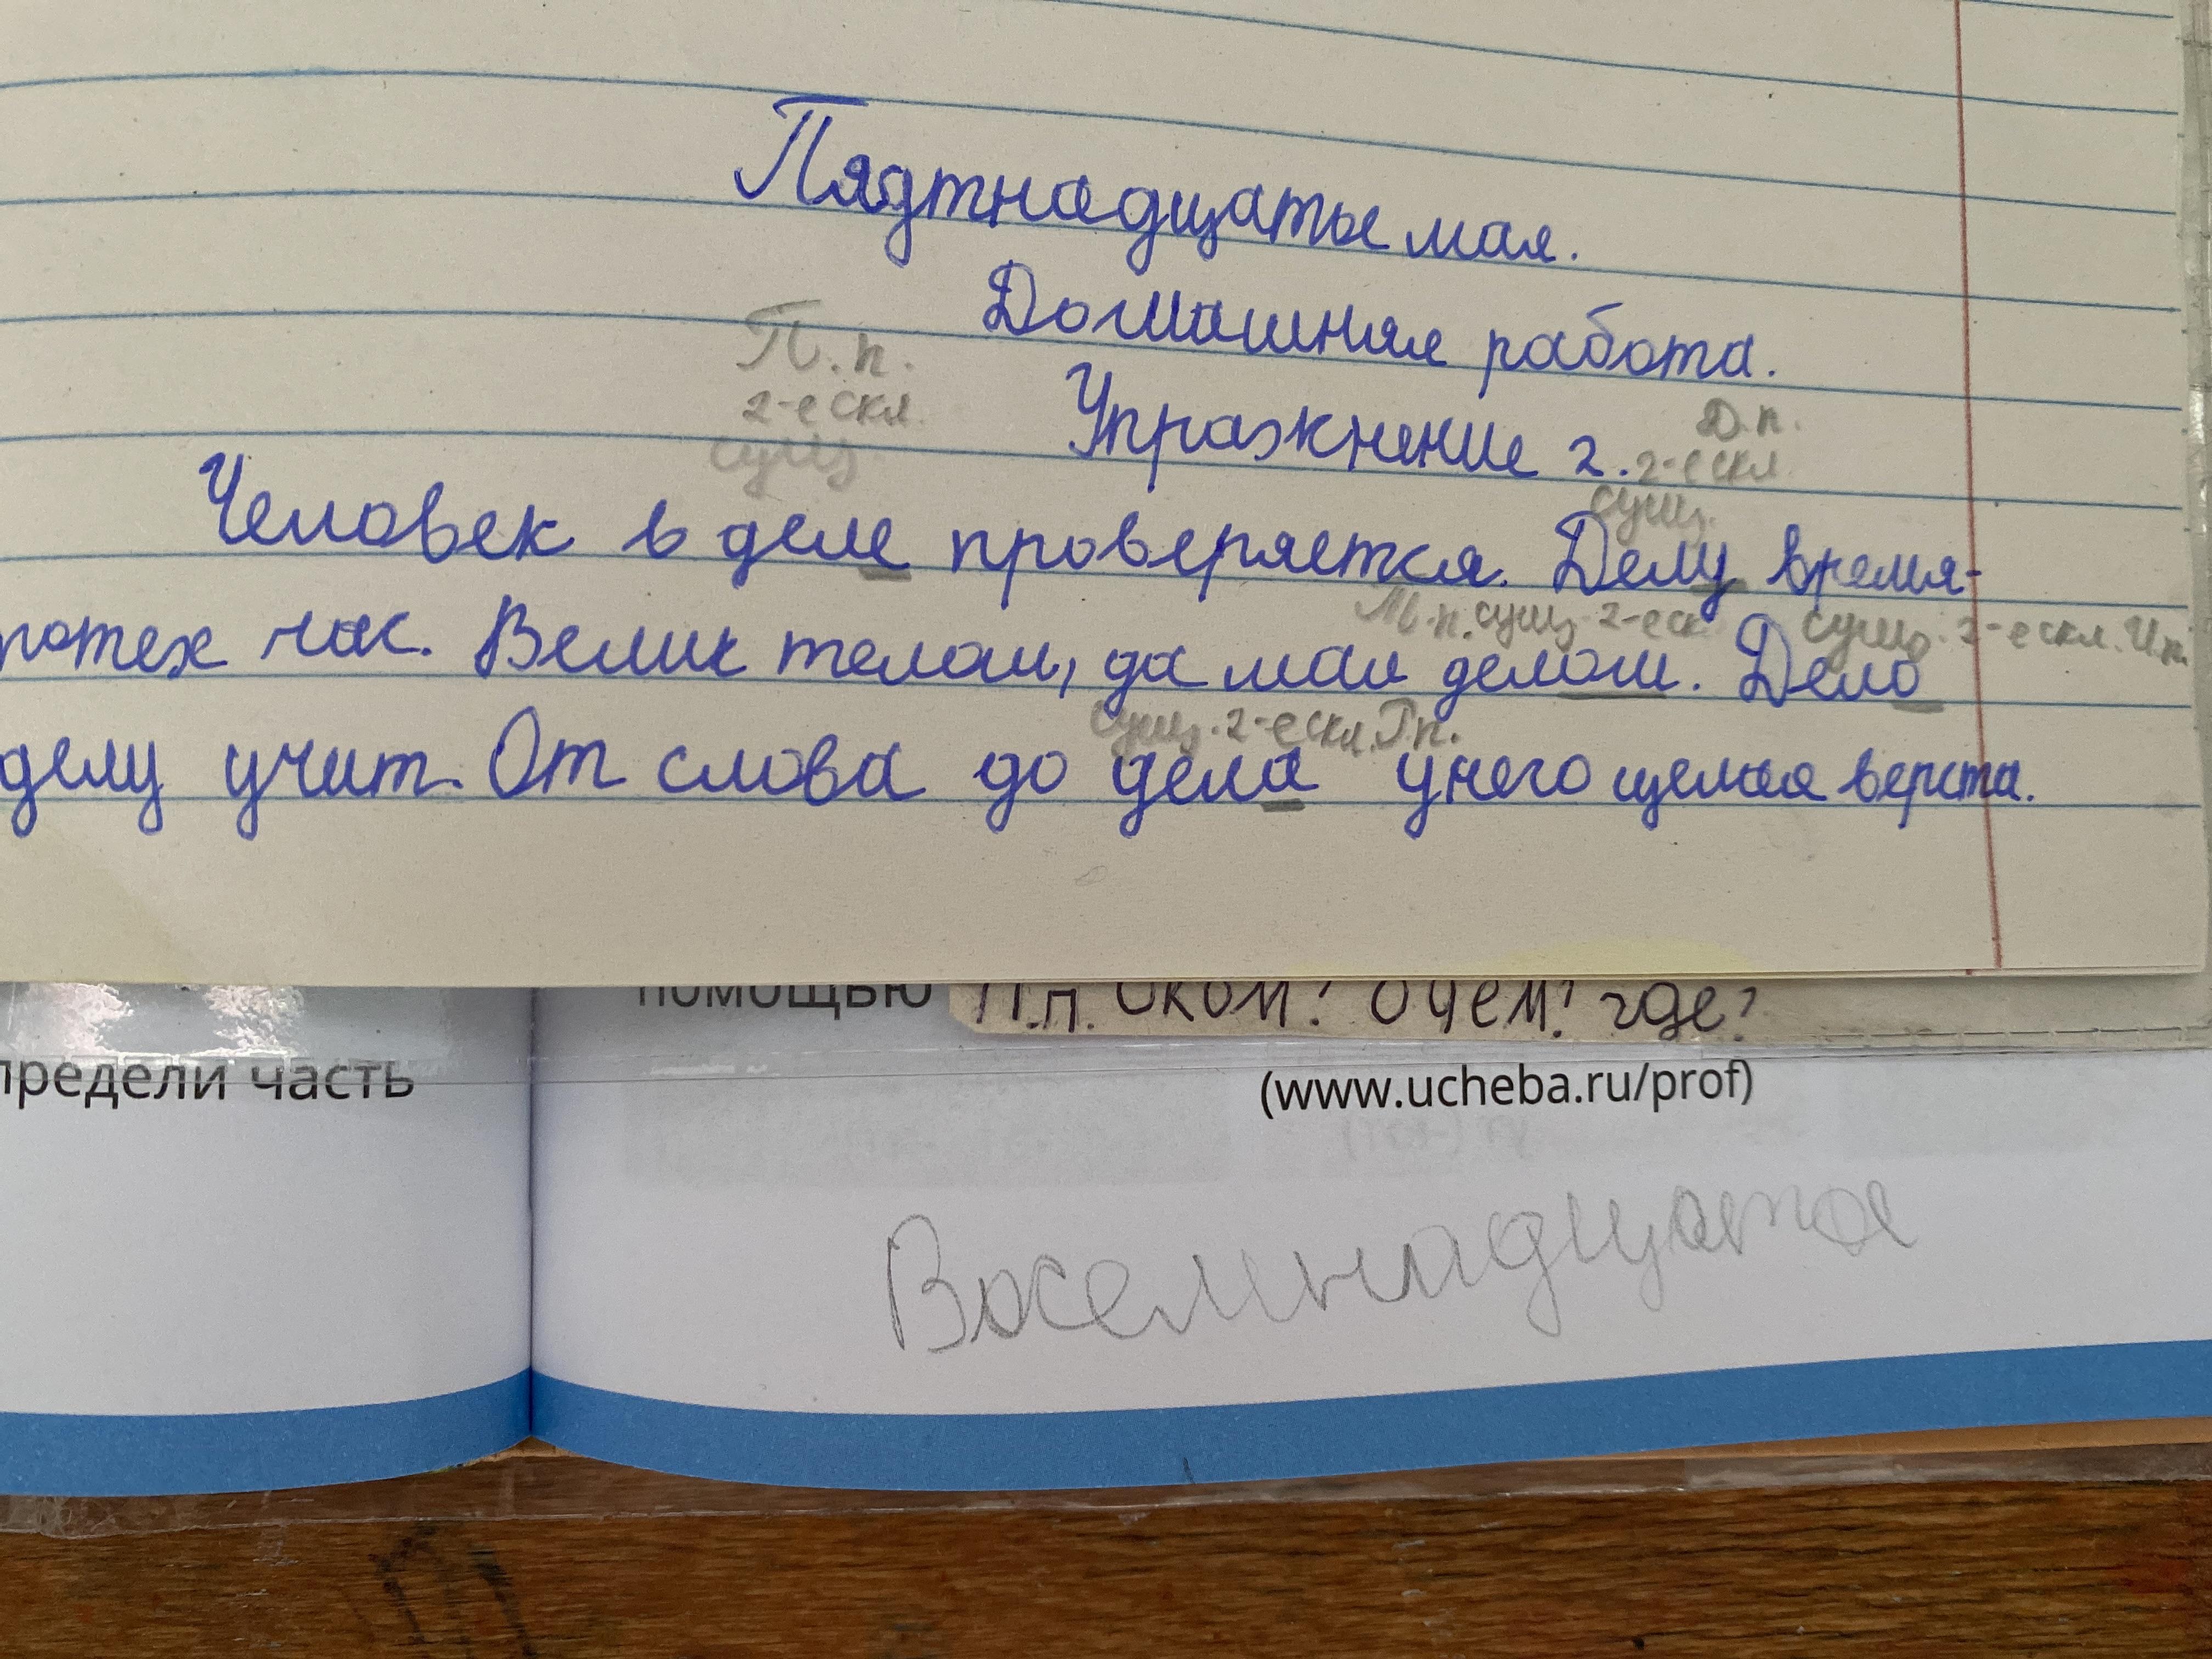 Пядтнадцатые мая.
Домашняя работа.
П.п.
Упражнение 2.
Д.п.
2-е скл.
2-е скл.
сущ.
сущ.
Человек в деле проверяется. Делу время-
потех час. Велик телом, да мал делом. Дело
Т.п. сущ. 2-е ск. сущ. 2-е скл. И.п.
делу учит. От слова до дела у него целая верста.
сущ. 2-е скл. Р.п.
помощью П.п. о ком? о чём? где?
предели часть
(www.ucheba.ru/prof)
Восемнадцатое